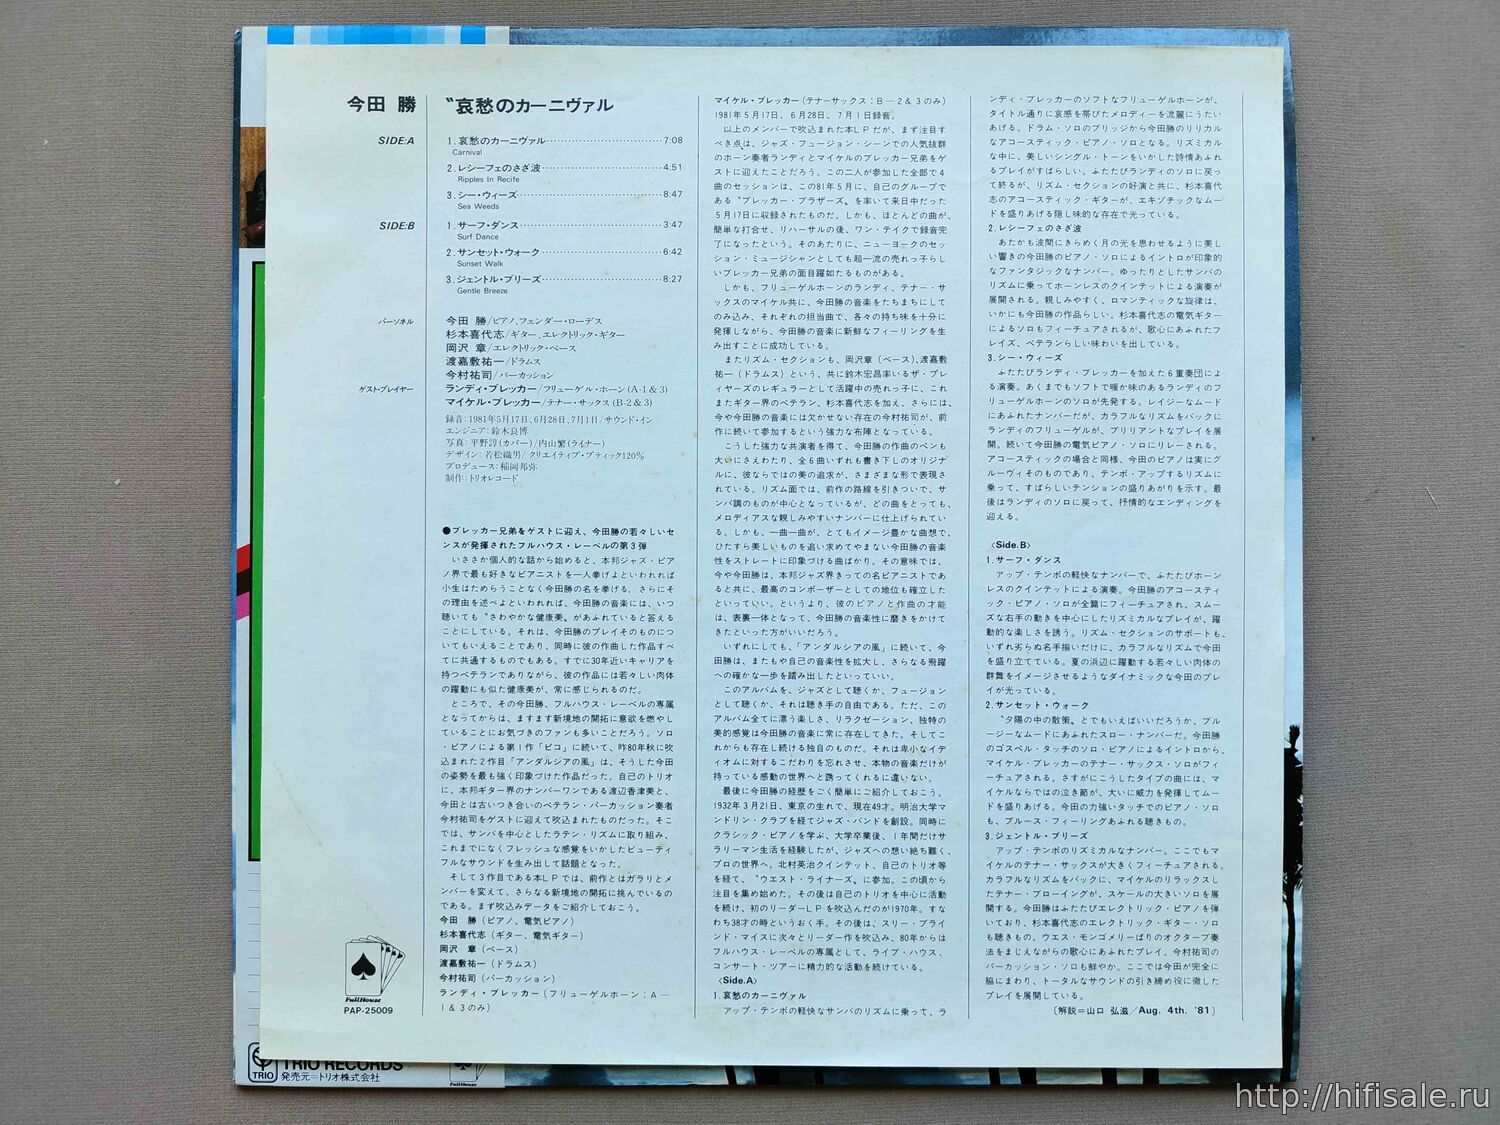 今田 勝
〝哀愁のカーニヴァル
SIDE:A
1.哀愁のカーニヴァル……7:08
Carnival
2.レシーフェのさざ波……4:51
Ripples In Recife
3.シー・ウィーズ……8:47
Sea Weeds
SIDE:B
1.サーフ・ダンス……3:47
Surf Dance
2.サンセット・ウォーク……6:42
Sunset Walk
3.ジェントル・ブリーズ……8:27
Gentle Breeze
パーソネル
今田 勝/ピアノ、フェンダー・ローデス
杉本喜代志/ギター、エレクトリック・ギター
岡沢 章/エレクトリック・ベース
渡嘉敷祐一/ドラムス
今村祐司/パーカッション
ゲスト・プレイヤー
ランディ・ブレッカー/フリューゲル・ホーン(A-1&3)
マイケル・ブレッカー/テナー・サックス(B-2&3)
録音:1981年5月17日、6月28日、7月1日/サウンド・イン
エンジニア:鈴木良博
写真:平野諄(カバー)/内山繁(ライナー)
デザイン:若松織男/クリエイティブ・ブティック120%
プロデュース:稲岡邦弥
制作:トリオレコード
●ブレッカー兄弟をゲストに迎え、今田勝の若々しいセ
ンスが発揮されたフルハウス・レーベルの第3弾
いささか個人的な話から始めると、本邦ジャズ・ピア
ノ界で最も好きなピアニストを一人挙げよといわれれば
小生はためらうことなく今田勝の名を挙げる。さらにそ
の理由を述べよといわれれば、今田勝の音楽には、いつ
聴いても〝さわやかな健康美〟があふれていると答える
ことにしている。それは、今田勝のプレイそのものにつ
いてもいえることであり、同時に彼の作曲した作品すべ
てに共通するものでもある。すでに30年近いキャリアを
持つベテランでありながら、彼の作品には若々しい肉体
の躍動にも似た健康美が、常に感じられるのだ。
ところで、その今田勝、フルハウス・レーベルの専属
となってからは、ますます新境地の開拓に意欲を燃やし
ていることにお気づきのファンも多いことだろう。ソロ
・ピアノによる第1作「ピコ」に続いて、昨80年秋に吹
込まれた2作目「アンダルシアの風」は、そうした今田
の姿勢を最も強く印象づけた作品だった。自己のトリオ
に、本邦ギター界のナンバーワンである渡辺香津美と、
今田とは古いつき合いのベテラン・パーカッション奏者
今村祐司をゲストに迎えて吹込まれたものだった。そこ
では、サンバを中心としたラテン・リズムに取り組み、
これまでになくフレッシュな感覚をいかしたビューティ
フルなサウンドを生み出して話題となった。
そして3作目である本LPでは、前作とはガラリとメ
ンバーを変えて、さらなる新境地の開拓に挑んでいるの
である。まず吹込みデータをご紹介しておこう。
今田 勝(ピアノ、電気ピアノ)
杉本喜代志(ギター、電気ギター)
岡沢 章(ベース)
渡嘉敷祐一(ドラムス)
今村祐司(パーカッション)
ランディ・ブレッカー(フリューゲルホーン:A—
1&3のみ)
マイケル・ブレッカー(テナーサックス:B—2&3のみ)
1981年5月17日、6月28日、7月1日録音。
以上のメンバーで吹込まれた本LPだが、まず注目す
べき点は、ジャズ・フュージョン・シーンでの人気抜群
のホーン奏者ランディとマイケルのブレッカー兄弟をゲ
ストに迎えたことだろう。この二人が参加した全部で4
曲のセッションは、この81年5月に、自己のグループで
ある〝ブレッカー・ブラザーズ〟を率いて来日中だった
5月17日に収録されたものだ。しかも、ほとんどの曲が、
簡単な打合せ、リハーサルの後、ワン・テイクで録音完
了になったという。そのあたりに、ニューヨークのセッ
ション・ミュージシャンとしても超一流の売れっ子らし
いブレッカー兄弟の面目躍如たるものがある。
しかも、フリューゲルホーンのランディ、テナー・サ
ックスのマイケル共に、今田勝の音楽をたちまちにして
のみ込み、それぞれの担当曲で、各々の持ち味を十分に
発揮しながら、今田勝の音楽に新鮮なフィーリングを生
み出すことに成功している。
またリズム・セクションも、岡沢章(ベース)、渡嘉敷
祐一(ドラムス)という、共に鈴木宏昌率いるザ・プレ
イヤーズのレギュラーとして活躍中の売れっ子に、これ
またギター界のベテラン、杉本喜代志を加え、さらには、
今や今田勝の音楽には欠かせない存在の今村祐司が、前
作に続いて参加するという強力な布陣となっている。
こうした強力な共演者を得て、今田勝の作曲のペンも
大いにさえわたり、全6曲いずれも書き下しのオリジナ
ルに、彼ならではの美の追求が、さまざまな形で表現さ
れている。リズム面では、前作の路線を引きついで、サ
ンバ調のものが中心となっているが、どの曲をとっても、
メロディアスな親しみやすいナンバーに仕上げられてい
る。しかも、一曲一曲が、とてもイメージ豊かな曲想で、
ひたすら美しいものを追い求めてやまない今田勝の音楽
性をストレートに印象づける曲ばかり。その意味では、
今や今田勝は、本邦ジャズ界きっての名ピアニストであ
ると共に、最高のコンポーザーとしての地位も確立した
といっていい。というより、彼のピアノと作曲の才能
は、表裏一体となって、今田勝の音楽性に磨きをかけて
きたといった方がいいだろう。
いずれにしても、「アンダルシアの風」に続いて、今
田勝は、またもや自己の音楽性を拡大し、さらなる飛躍
への確かな一歩を踏み出したといっていい。
このアルバムを、ジャズとして聴くか、フュージョン
として聴くか、それは聴き手の自由である。ただ、この
アルバム全てに漂う楽しさ、リラクゼーション、独特の
美的感覚は今田勝の音楽に常に存在してきた。そしてこ
れからも存在し続ける独自のものだ。それは卑小なイデ
ィオムに対するこだわりを忘れさせ、本物の音楽だけが
持っている感動の世界へと誘ってくれるに違いない。
最後に今田勝の経歴をごく簡単にご紹介しておこう。
1932年3月21日、東京の生れで、現在49才。明治大学マ
ンドリン・クラブを経てジャズ・バンドを創設。同時に
クラシック・ピアノを学ぶ、大学卒業後、1年間だけサ
ラリーマン生活を経験したが、ジャズへの想い絶ち難く、
プロの世界へ。北村英治クインテット、自己のトリオ等
を経て、〝ウエスト・ライナーズ〟に参加。この頃から
注目を集め始めた。その後は自己のトリオを中心に活動
を続け、初のリーダーLPを吹込んだのが1970年。すな
わち38才の時というおく手。その後は、スリー・ブライ
ンド・マイスに次々とリーダー作を吹込み、80年からは
フルハウス・レーベルの専属として、ライブ・ハウス、
コンサート・ツアーに精力的な活動を続けている。
〈Side.A〉
1.哀愁のカーニヴァル
アップ・テンポの軽快なサンバのリズムに乗って、ラ
ンディ・ブレッカーのソフトなフリューゲルホーンが、
タイトル通りに哀感を帯びたメロディーを流麗にうたい
あげる。ドラム・ソロのブリッジから今田勝のリリカル
なアコースティック・ピアノ・ソロとなる。リズミカル
な中に、美しいシングル・トーンをいかした詩情あふれ
るプレイがすばらしい。ふたたびランディのソロに戻っ
て終るが、リズム・セクションの好演と共に、杉本喜代
志のアコースティック・ギターが、エキゾチックなムー
ドを盛りあげる隠し味的な存在で光っている。
2.レシーフェのさざ波
あたかも波間にきらめく月の光を思わせるように美し
い響きの今田勝のピアノ・ソロによるイントロが印象的
なファンタジックなナンバー。ゆったりとしたサンバの
リズムに乗ってホーンレスのクインテットによる演奏が
展開される。親しみやすく、ロマンティックな旋律は、
いかにも今田勝の作品らしい。杉本喜代志の電気ギター
によるソロもフィーチュアされるが、歌心にあふれたフ
レイズ、ベテランらしい味わいを出している。
3.シー・ウィーズ
ふたたびランディ・ブレッカーを加えた6重奏団によ
る演奏。あくまでもソフトで暖か味のあるランディのフ
リューゲルホーンのソロが先発する。レイジーなムード
にあふれたナンバーだが、カラフルなリズムをバックに
ランディのフリューゲルが、ブリリアントなプレイを展
開。続いて今田勝の電気ピアノ・ソロにリレーされる。
アコースティックの場合と同様、今田のピアノは実にグ
ルーヴィそのものであり、テンポ・アップするリズムに
乗って、すばらしいテンションの盛りあがりを示す。最
後はランディのソロに戻って、抒情的なエンディングを
迎える。
〈Side.B〉
1.サーフ・ダンス
アップ・テンポの軽快なナンバーで、ふたたびホーン
レスのクインテットによる演奏。今田勝のアコースティ
ック・ピアノ・ソロが全篇にフィーチュアされ、スムー
ズな右手の動きを中心にしたリズミカルなプレイが、躍
動的な楽しさを誘う。リズム・セクションのサポートも、
いずれ劣らぬ名手揃いだけに、カラフルなリズムで今田
を盛り立てている。夏の浜辺に躍動する若々しい肉体の
群舞をイメージさせるようなダイナミックな今田のプレ
イが光っている。
2.サンセット・ウォーク
〝夕陽の中の散策〟とでもいえばいいだろうか、ブル
ージーなムードにあふれたスロー・ナンバーだ。今田勝
のゴスペル・タッチのソロ・ピアノによるイントロから、
マイケル・ブレッカーのテナー・サックス・ソロがフィ
ーチュアされる。さすがにこうしたタイプの曲には、マ
イケルならではの泣き節が、大いに威力を発揮してムー
ドを盛りあげる。今田の力強いタッチでのピアノ・ソロ
も、ブルース・フィーリングあふれる聴きもの。
3.ジェントル・ブリーズ
アップ・テンポのリズミカルなナンバー。ここでもマ
イケルのテナー・サックスが大きくフィーチュアされる。
カラフルなリズムをバックに、マイケルのリラックスし
たテナー・ブローイングが、スケールの大きいソロを展
開する。今田勝はふたたびエレクトリック・ピアノを弾
いており、杉本喜代志のエレクトリック・ギター・ソロ
も聴きもの。ウエス・モンゴメリーばりのオクターブ奏
法をまじえながらの歌心にあふれたプレイ。今村祐司の
パーカッション・ソロも鮮やか。ここでは今田が完全に
脇にまわり、トータルなサウンドの引き締め役に徹した
プレイを展開している。
〔解説=山口 弘滋/Aug. 4th. '81〕
FullHouse
PAP-25009
TRIO
TRIO RECORDS
発売元=トリオ株式会社
http://hifisale.ru